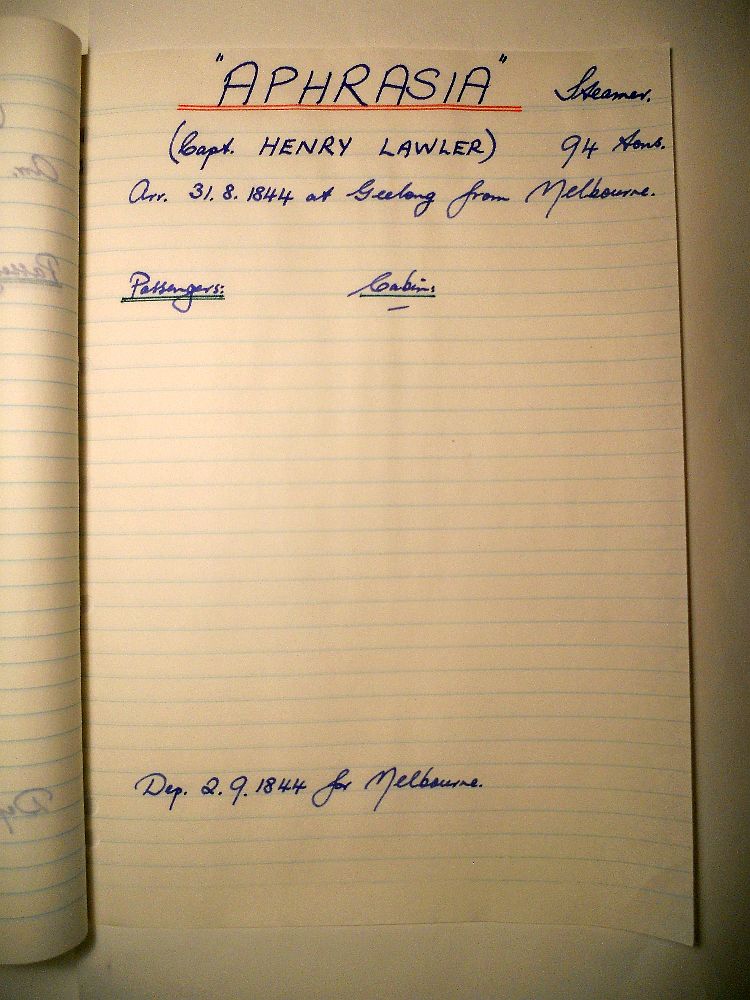 "APHRASIA" Steamer.
(Capt. HENRY LAWLER) 94 tons.
Arr. 31.8.1844 at Geelong from Melbourne.
Passengers: Cabin:
–
Dep. 2.9.1844 for Melbourne.